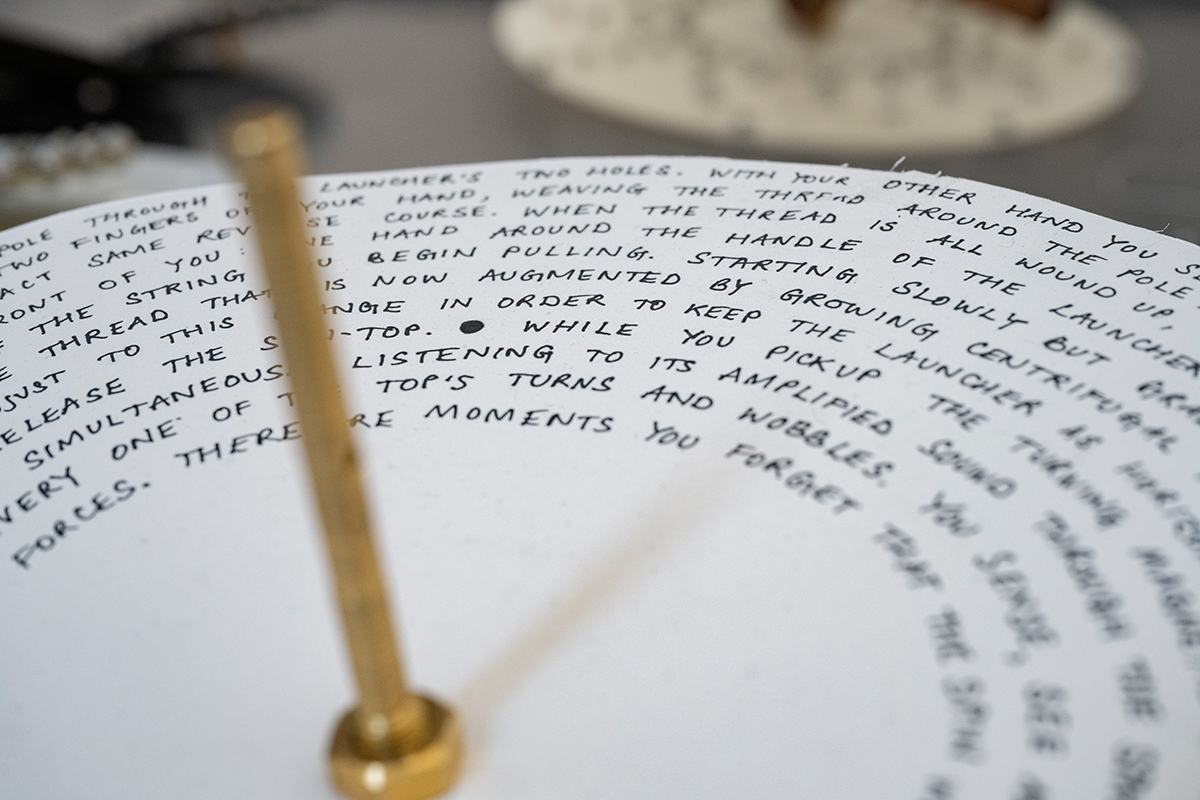 POLE THROUGH LAUNCHER'S TWO HOLES. WITH YOUR OTHER HAND YOU
TWO FINGERS OF YOUR HAND, WEAVING THE THREAD AROUND THE POLE
SAME COURSE. WHEN THE THREAD IS ALL WOUND UP,
OF YOU HAND AROUND THE HANDLE OF THE LAUNCHER
THE STRING BEGIN PULLING. STARTING SLOWLY BUT
THREAD THAT IS NOW AUGMENTED BY GROWING CENTRIFUGAL
TO THIS CHANGE IN ORDER TO KEEP THE LAUNCHER AS
RELEASE THE -TOP. ● WHILE YOU PICKUP THE TURNING
SIMULTANEOUS LISTENING TO ITS AMPLIFIED SOUND THROUGH THE
EVERY ONE OF THE TOP'S TURNS AND WOBBLES. YOU SENSE, SEE
FORCES. THERE ARE MOMENTS YOU FORGET THAT THE SPIN